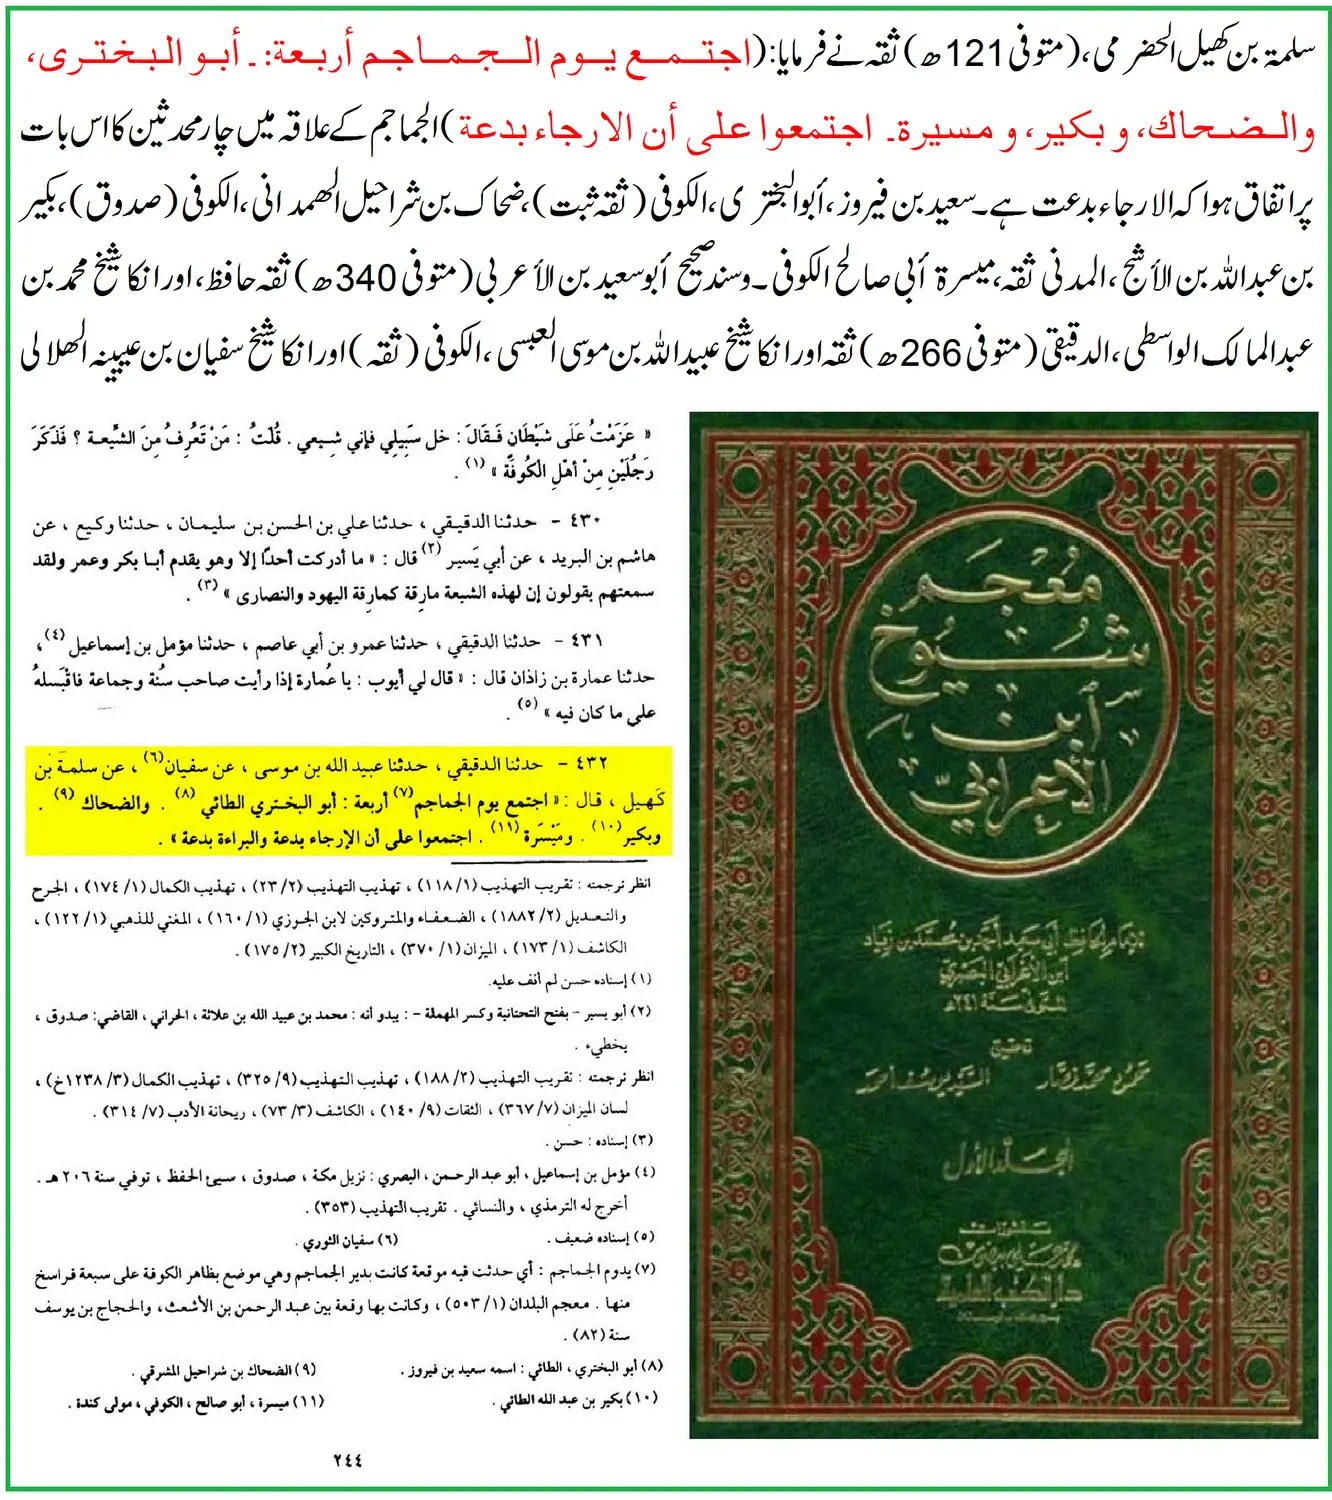 سلمۃ بن کھیل الحضرمی،(متوفی 121ھ) ثقہ نے فرمایا:(اجتمع يوم الجماجم أربعة:۔ أبو البختری،
والضحاك، و بكير، و مسيرة۔ اجتمعوا على أن الارجاء بدعة)الجماجم کے علاقہ میں چار محدثین کا اس بات
پر اتفاق ہوا کہ الارجاء بدعت ہے۔سعید بن فیروز،أبوالبختری،الکوفی(ثقہ ثبت)،ضحاک بن شراحیل الھمدانی،الکوفی(صدوق)،بکیر
بن عبداللہ بن الأشج،المدنی ثقہ،میسرۃ أبی صالح الکوفی۔وسندصحیح أبوسعید بن الأعربی(متوفی 340ھ) ثقہ حافظ،اور انکا شیخ محمد بن
عبدالمالک الواسطی،الدقیقی(متوفی 266ھ) ثقہ اور انکا شیخ عبیداللہ بن موسی العبسی،الکوفی(ثقہ)اور انکا شیخ سفیان بن عیینہ الھلالی
« عَزَمْتُ عَلَى شَيْطَانٍ فَقَالَ : خل سَبِيلِي فإني شِيعي . قُلْتُ : مَنْ تَعْرِفُ مِنَ الشِّيعة ؟ فَذَكَرَ
رَجُلَيْنِ مِنْ أهْلِ الْكُوفَةِ » (١) .
٤٣٠ – حدثنا الدقيقي ، حدثنا علي بن الحسن بن سليمان ، حدثنا وكيع ، عن
هاشم بن البريد ، عن أبي يَسير (٢) قال : « ما أدركت أحدًا إلا وهو يقدم أبا بكر وعمر ولقد
سمعتهم يقولون إن لهذه الشيعة مارقة كمارقة اليهود والنصارى » (٣) .
٤٣١ – حدثنا الدقيقي ، حدثنا عمرو بن أبي عاصم ، حدثنا مؤمل بن إسماعيل (٤) ،
حدثنا عمارة بن زاذان قال : « قال لي أيوب : يا عُمارة إذا رأيت صاحب سُنَّة وجماعة فاقْبَسلهُ
على ما كان فيه » (٥) .
٤٣٢ – حدثنا الدقيقي ، حدثنا عبيد الله بن موسى ، عن سفيان (٦) ، عن سلمة بن
كَهيل ، قال : « اجتمع يوم الجماجم (٧) أربعة : أبو البختري الطائي (٨) . والضحاك (٩) .
وبكير (١٠) . ومَيْسَرة (١١) . اجتمعوا على أن الإرجاء بدعة والبراءة بدعة » .
انظر ترجمته : تقريب التهذيب (١/ ١١٨) ، تهذيب التهذيب (٢/ ٢٣) ، تهذيب الكمال (١/ ١٧٤) ، الجرح
والتعديل (٢/ ١٨٨٢) ، الضعفاء والمتروكين لابن الجوزي (١/ ١٦٠) ، المغني للذهبي (١/ ١٢٢) ،
الكاشف (١/ ١٧٣) ، الميزان (١/ ٣٧٠) ، التاريخ الكبير (٢/ ١٧٥) .
(١) إسناده حسن لم أقف عليه.
(٢) أبو يسير – بفتح التحتانية وكسر المهملة – : يبدو أنه : محمد بن عبيد الله بن علاثة ، الحراني ، القاضي: صدوق ،
يخطيء .
انظر ترجمته : تقريب التهذيب (٢/ ١٨٨) ، تهذيب التهذيب (٩/ ٣٢٥) ، تهذيب الكمال (٣/ ١٢٣٨خ) ،
لسان الميزان (٧/ ٣٦٧) ، الثقات (٩/ ١٤٠) ، الكاشف (٣/ ٧٣) ، ريحانة الأدب (٧/ ٣١٤) .
(٣) إسناده : حسن .
(٤) مؤمل بن إسماعيل ، أبو عبد الرحمن ، البصري : نزيل مكة ، صدوق ، سيئ الحفظ ، توفي سنة ٢٠٦ هـ .
أخرج له الترمذي ، والنسائي . تقريب التهذيب (٣٥٣) .
(٥) إسناده ضعيف . (٦) سفيان الثوري .
(٧) يدوم الجماجم : أي حدثت فيه موقعة كانت بدير الجماجم وهي موضع بظاهر الكوفة على سبعة فراسخ
منها . معجم البلدان (١/ ٥٠٣) ، وكانت بها وقعة بين عبد الرحمن بن الأشعث، والحجاج بن يوسف
سنة (٨٢) .
(٨) أبو البختري ، الطائي : اسمه سعيد بن فيروز . (٩) الضحاك بن شراحيل المشرقي .
(١٠) بكير بن عبد الله الطائي . (١١) ميسرة ، أبو صالح ، الكوفي ، مولى كندة .
٢٤٤
مُعْجَم
شُيُوخ
ابن
الأعرابي
للإمام الحافظ أبي سعيد أحمد بن محمد بن زياد
ابن الأعرابي البصري
المتوفى سنة ٣٤١هـ
تحقيق
محمود محمد نصار السيد يوسف أحمد
المجلد الأول
منشورات
محمد علي بيضون
دار الكتب العلمية